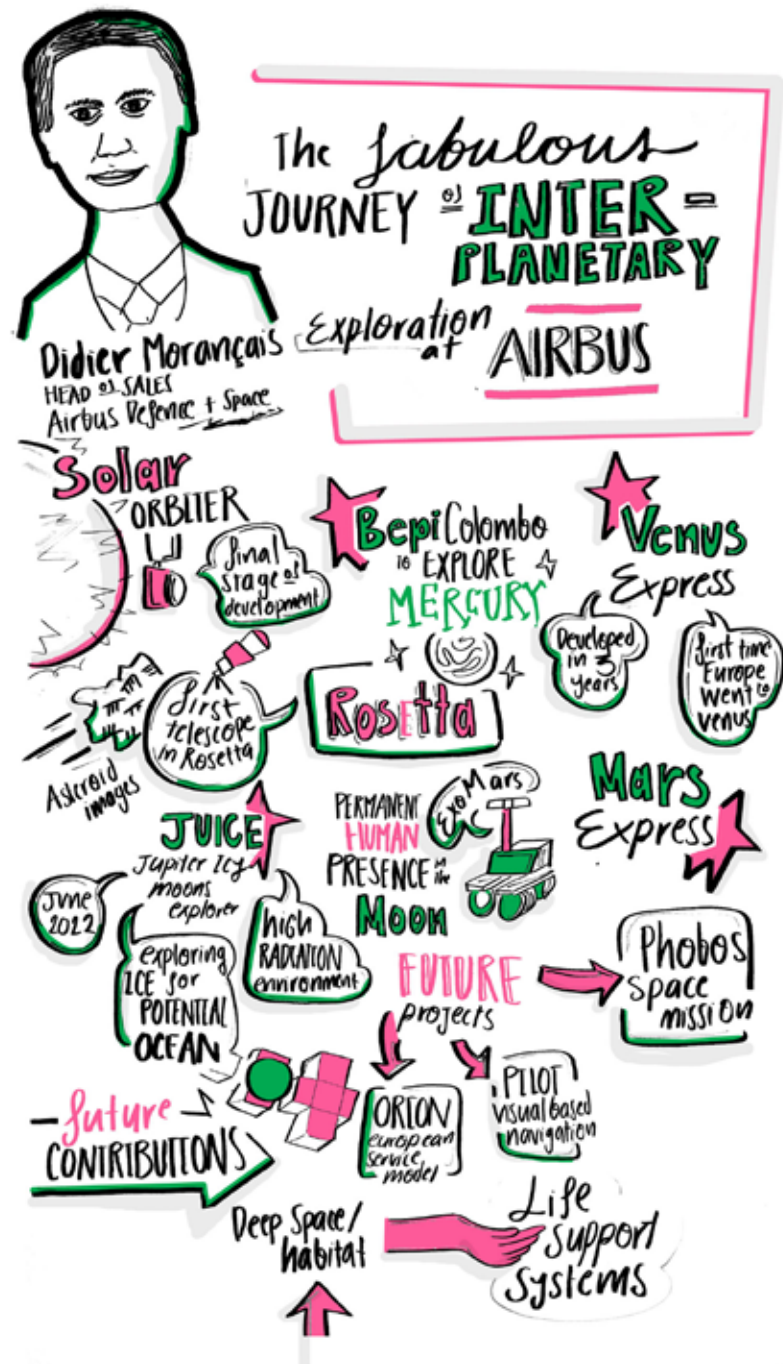 The fabulous
JOURNEY of INTER-
PLANETARY
Exploration
at
AIRBUS
Didier Morançais
HEAD of SALES
Airbus Defence + Space
Solar
ORBITER
final
stage of
development
BepiColombo
to EXPLORE
MERCURY
Venus
Express
Developed
in 3
years
first time
Europe
went to
venus
Rosetta
first
telescope
in Rosetta
Asteroid
images
JUICE
Jupiter Icy
moons
explorer
June
2022
high
RADIATION
environment
exploring
ICE for
POTENTIAL
OCEAN
PERMANENT
HUMAN
PRESENCE in the
Moon
ExoMars
Mars
Express
FUTURE
projects
Phobos
space
mission
ORION
european
service
model
PILOT
visual based
navigation
future
CONTRIBUTIONS
Deep Space/
habitat
Life
support
systems